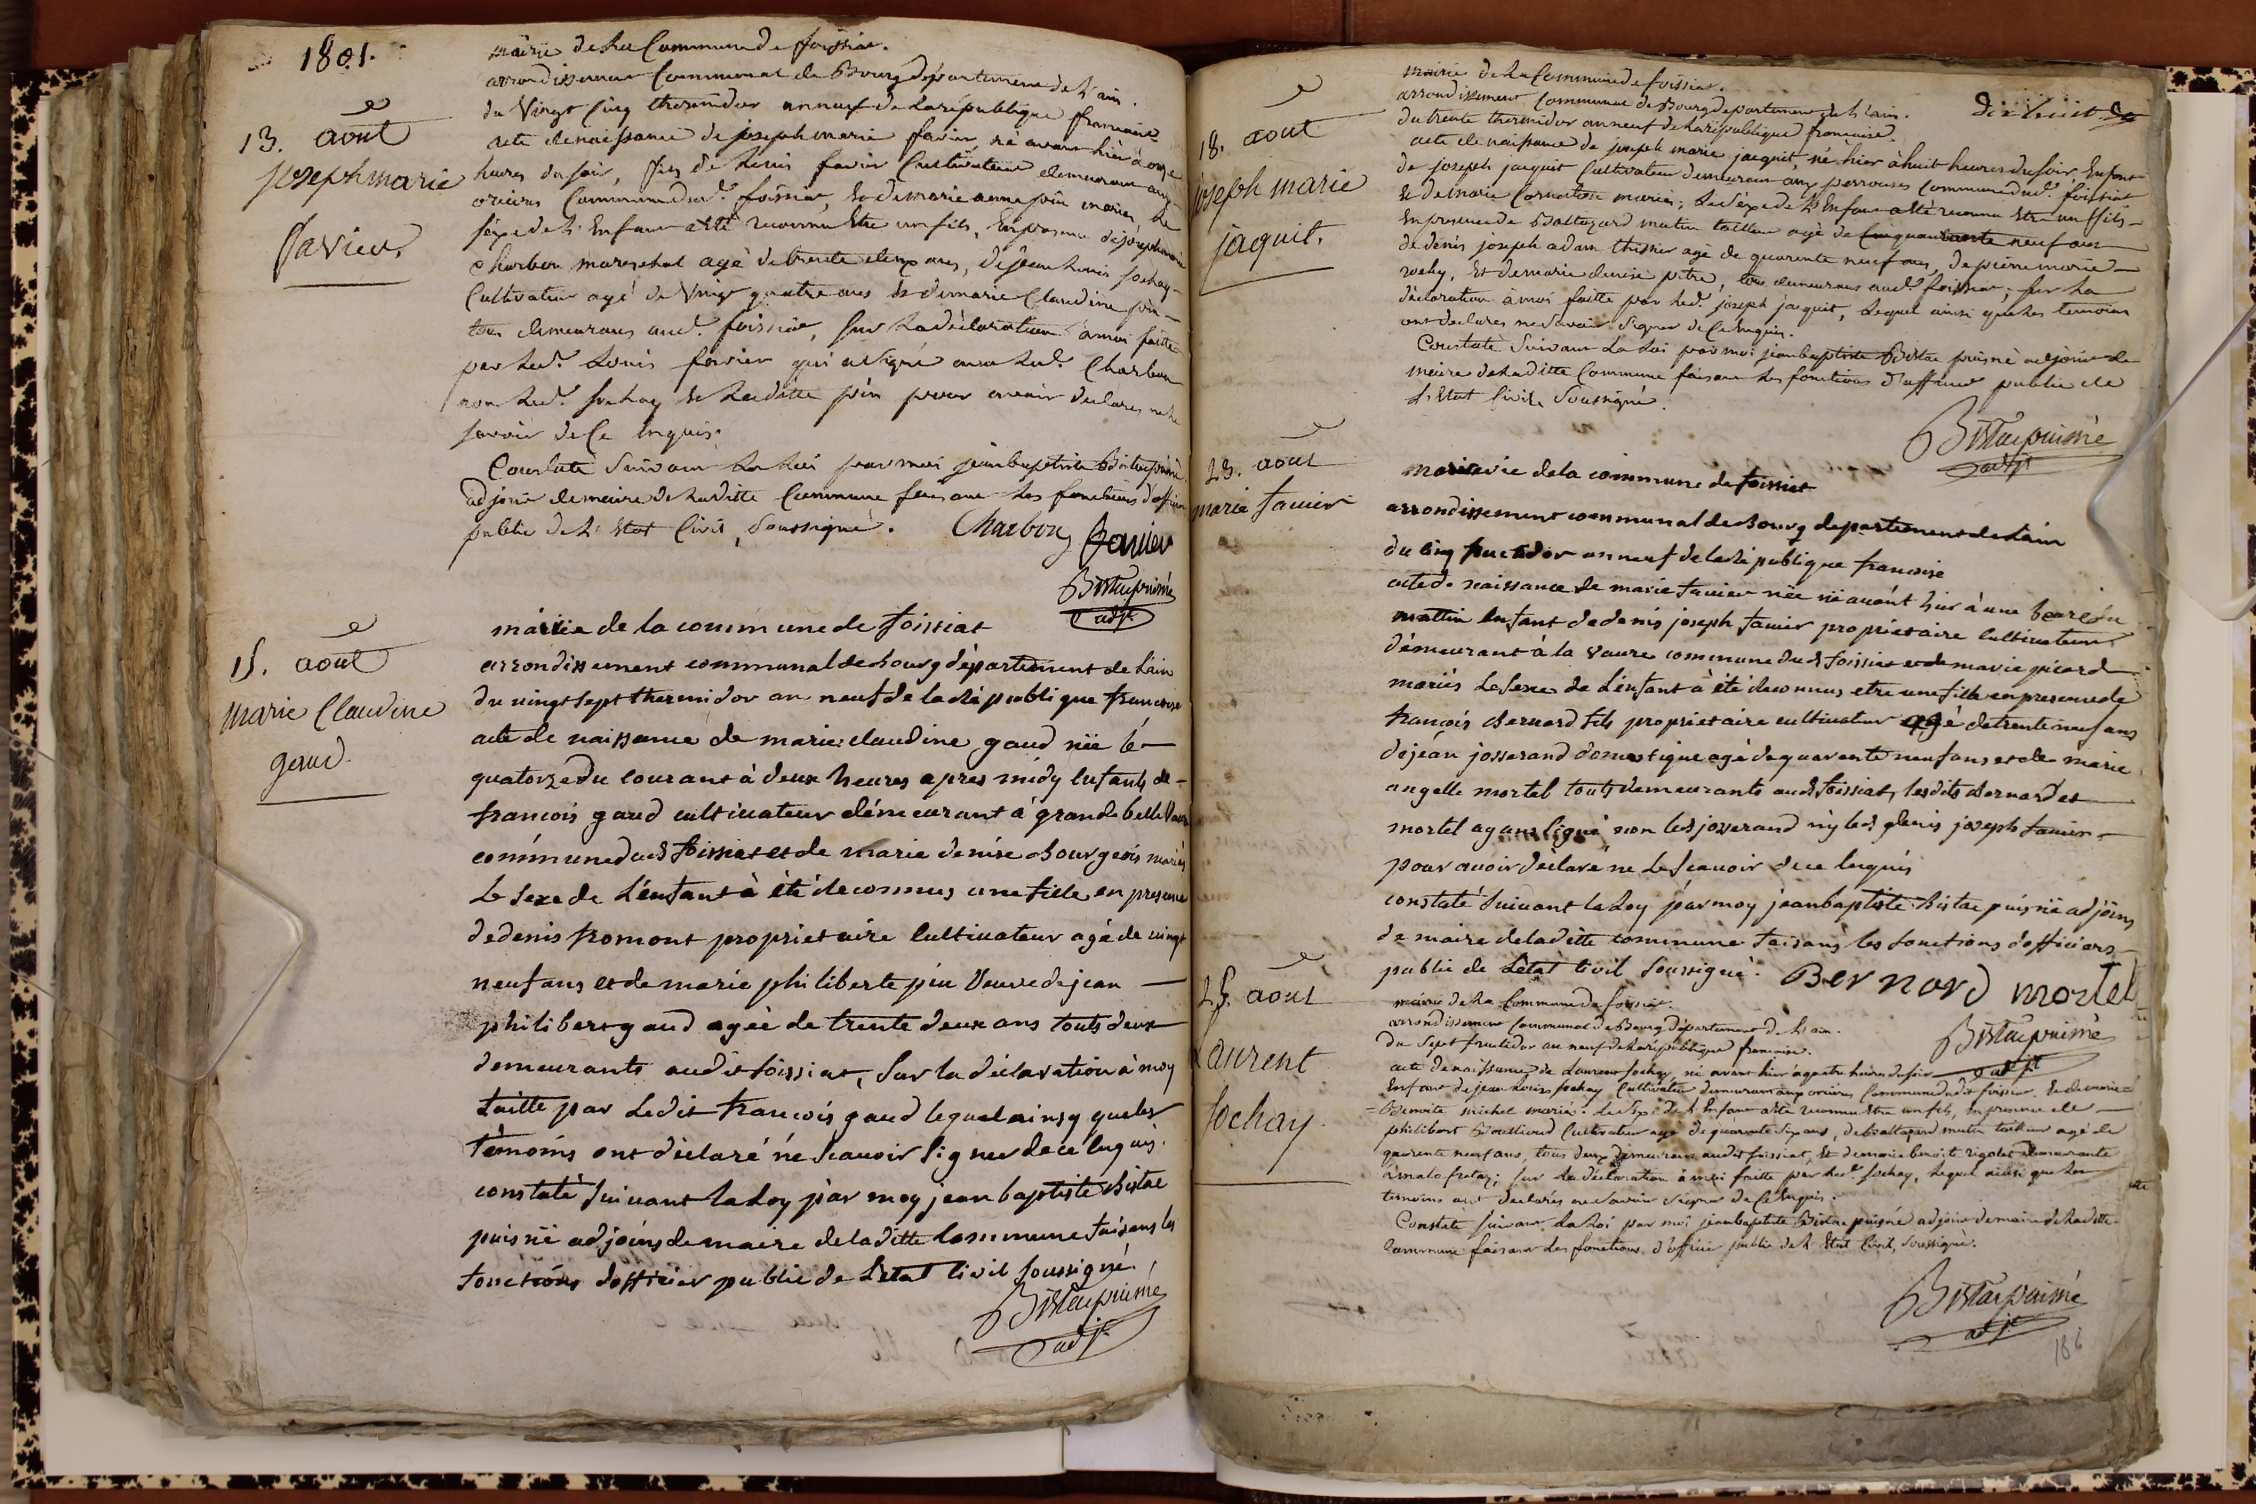 1801.
13. aout
joseph marie
favier
mairie de La Commune de foissiat.
arrondissement Communal de Bourg département de L'ain.
du Vingt Cinq thermidor an neuf de La république française
acte de naissance de joseph marie favier, né avant hier à onze
heures du soir, fils de Louis favier Cultivateur demeurant aux
oriers Commune dud.t foissiat, Et de marie anne pin mariés, Le
sexe de L'Enfant a été reconnu Etre un fils, En présence de joseph marie
Charbon mareschal agé de trente deux ans, de jean Louis sochay
Cultivateur agé de Vingt quatre ans Et de marie Claudine pin
tous demeurans aud.t foissiat, sur La déclaration à moi faitte
par Led.t Louis favier qui a signé avec Led.t Charbon
non Led.t sochay Et Laditte pin pour avoir déclarés ne Le
savoir de Ce Enquis.
Constaté Suivant La Loi par moi jean baptiste Bistac puisné
adjoint de maire de Laditte Commune faisant Les fonctions d'officier
public de L'Etat Civil, Soussigné. Charbon favier
Bistac puisné
adjt
15. aout
marie Claudine
gaud
mairie de la commune de foissiat
arrondissement communal de bourg département de Lain
du vingt sept thermidor an neuf de la république francoise
acte de naissance de marie claudine gaud née le
quatorze du courant à deux heures apres midy Enfants de
francois gaud cultivateur démeurant à grande belle Vavre
commune dud foissiat et de marie denise bourgeois mariés
Le sexe de L'énfant à été déconnus une fille en presence
de denis fromont proprietaire Cultivateur agé de vingt
neuf ans et de marie philiberte pin Veuve de jean
philibert gaud agée de trente deux ans touts deux
demeurants audit foissiat, Sur la déclaration à moy
faitte par Ledit francois gaud lequel ainsy que les
témoins ont déclaré né Scavoir Signer de ce Enquis.
constaté Suivant la Loy pàr moy jean baptiste Bistac
puisné adjoint de maire de laditte Commune faisans les
fonctions dofficier public de Letat Civil Soussigné.
Bistac puisné
adjt
dix huit
18. aout
joseph marie
jaquit.
mairie de La Commune de foissiat.
arrondissement Communal de Bourg département de L'ain.
du trente thermidor an neuf de La république française.
acte de naissance de joseph marie jacquit, né hier à huit heures du soir Enfant
de joseph jacquit Cultivateur demeurant aux perrouses Commune dud.t foissiat
Et de marie Cornaton mariés; Le sexe de L'Enfant a été reconnu Etre un fils
En présence de Baltazard mutin tailleur agé de quarante neuf ans
de denis joseph adam thissier agé de quarente neuf ans, de pierre marie
rochy, Et de marie denise pitre, tous demeurans aud.t foissiat; sur La
déclaration à moi faitte par Led.t joseph jacquit, Lequel ainsi que Les temoins
ont déclarés ne Savoir Signer de Ce Enquis.
Constaté Suivant La Loi par moi jean baptiste Bistac puisné adjoint de
maire de Laditte Commune faisant Les fonctions d'officier public de
L'Etat Civil Soussigné.
Bistac puisné
adjt
23. aout
marie favier
mairie de la commune de foissiat
arrondissement communal de bourg departement de Lain
du cinq fructidor an neuf de la république francoise
acte de naissance de marie favier née né avant hier à une heure du
mattin Enfant de denis joseph favier proprietaire Cultivateur
démeurant à la Vavre commune dud foissiat et de marie picard
mariés Le sexe de L'énfant à été déconnus etre une fille en presence de
francois bernard fils proprietaire cultivateur agé de trente neuf ans
de jean josserand domestique agé de quarente neuf ans et de marie
angelle mortel touts demeurants aud foissiat, lesdits bernard et
mortel ayant signé non led josserand ny led denis joseph favier
pour avoir déclaré ne Le Scavoir de ce Enquis
constaté Suivant la Loy pàr moy jean baptiste Bistac puisné adjoins
de maire de laditte commune faisans les fonctions d'officiers
public de Létat Civil Soussigné. Bernard mortel
Bistac puisné
adjt
25. aout
Laurent
sochay
mairie de La Commune de foissiat.
arrondissement Communal de Bourg département de L'ain.
du Sept fructidor an neuf de La république française.
acte de naissance de Laurent sochay né avant hier à quatre heures du soir
Enfant de jean Louis sochay Cultivateur demeurant aux oriers Commune dudit foissiat. Et de marie
Benoite michel mariés. Le sexe de L'Enfant a été reconnu Etre un fils, En présence de
philibert Cultivateur agé de quarante Six ans, de baltazard mutin tailleur agé de
quarente neuf ans, tous deux demeurans audit foissiat, Et de marie benoite rigolet demeurante
à malafretaz; sur La déclaration à moi faitte par Led.t sochay, Lequel ainsi que Les
témoins ont déclarés ne Savoir Signer de Ce Enquis.
Constaté Suivant La Loi par moi jean baptiste Bistac puisné adjoint de maire de Laditte
Commune faisant Les fonctions d'officier public de L'Etat Civil, Soussigné.
Bistac puisné
adjt
186